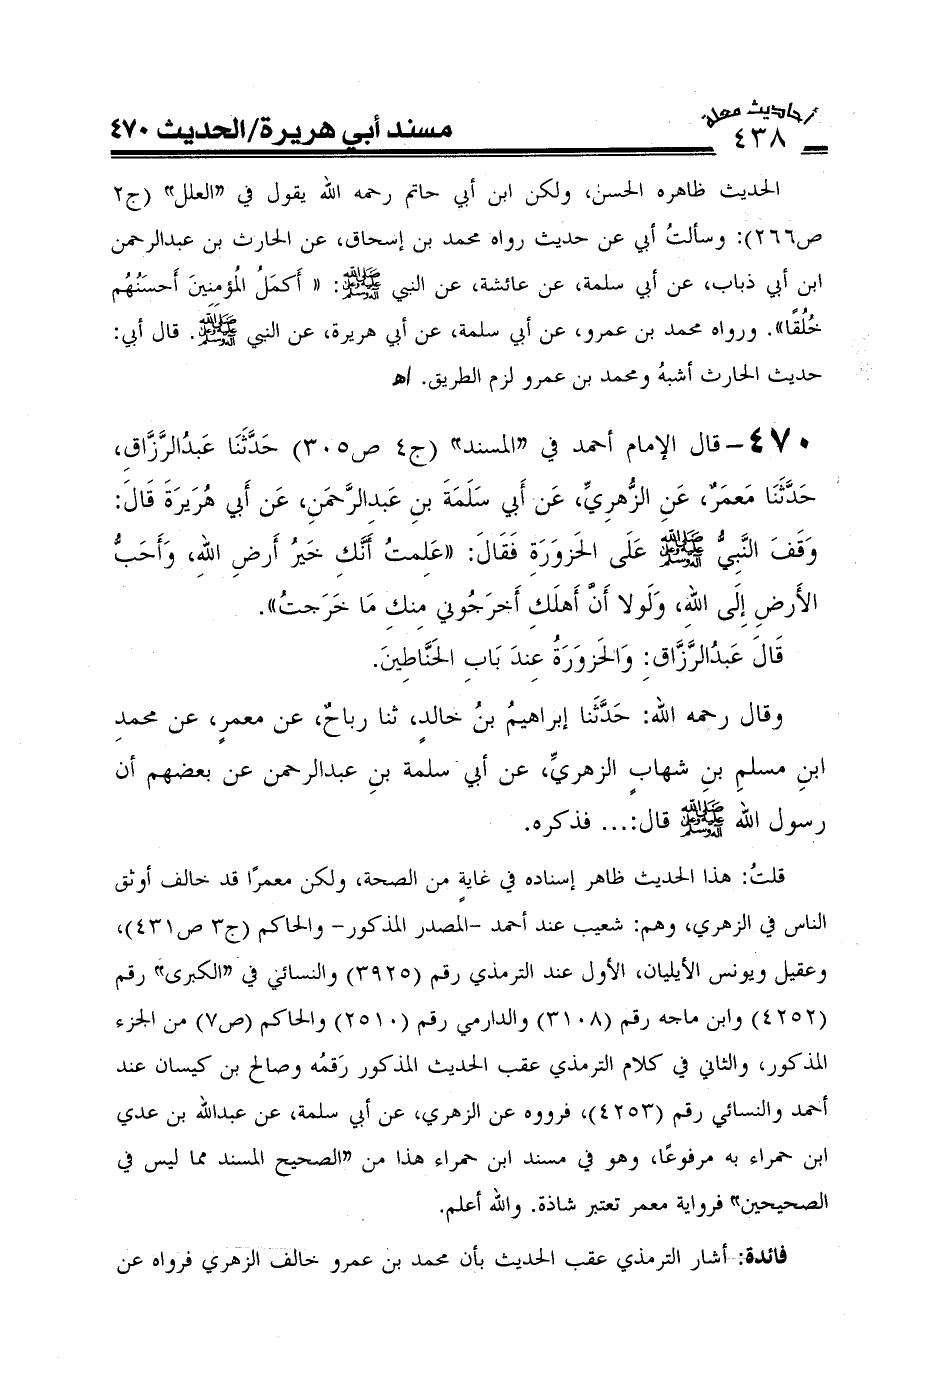 أحاديث معلة
٤٣٨
مسند أبي هريرة/الحديث ٤٧٠
الحديث ظاهره الحسن، ولكن ابن أبي حاتم رحمه الله يقول في «العلل» (ج٢
ص٢٦٦): وسألتُ أبي عن حديث رواه محمد بن إسحاق، عن الحارث بن عبدالرحمن
ابن أبي ذباب، عن أبي سلمة، عن عائشة، عن النبي ﷺ: «أَكمَلُ المُؤمِنِينَ أَحسَنُهُم
خُلُقًا». ورواه محمد بن عمرو، عن أبي سلمة، عن أبي هريرة، عن النبي ﷺ. قال أبي:
حديث الحارث أشبهُ ومحمد بن عمرو لزم الطريق. اهـ
٤٧٠– قال الإمام أحمد في «المسند» (ج٤ ص٣٠٥) حَدَّثَنَا عَبدُالرَّزَّاقِ،
حَدَّثَنَا مَعمَرٌ، عَنِ الزُّهرِيِّ، عَن أَبي سَلَمَةَ بنِ عَبدِالرَّحمَنِ، عَن أَبي هُرَيرَةَ قَالَ:
وَقَفَ النَّبِيُّ ﷺ عَلَى الحَزوَرَةِ فَقَالَ: «عَلِمتُ أَنَّكِ خَيرُ أَرضِ اللهِ، وَأَحَبُّ
الأَرضِ إِلَى اللهِ، وَلَولا أَنَّ أَهلَكِ أَخرَجُوني مِنكِ مَا خَرَجتُ».
قَالَ عَبدُالرَّزَّاقِ: وَالحَزوَرَةُ عِندَ بَابِ الحَنَّاطِينَ.
وقال رحمه الله: حَدَّثَنا إبراهيمُ بنُ خالدٍ، ثنا رباحٌ، عن معمرٍ، عن محمدِ
ابنِ مسلمِ بنِ شهابٍ الزهريِّ، عن أبي سلمة بنِ عبدالرحمن عن بعضهم أن
رسول الله ﷺ قال:... فذكره.
قلتُ: هذا الحديث ظاهر إسناده في غايةٍ من الصحة، ولكن معمرًا قد خالف أوثق
الناس في الزهري، وهم: شعيب عند أحمد -المصدر المذكور- والحاكم (ج٣ ص٤٣١)،
وعقيل ويونس الأيليان، الأول عند الترمذي رقم (٣٩٢٥) والنسائي في «الكبرى» رقم
(٤٢٥٢) وابن ماجه رقم (٣١٠٨) والدارمي رقم (٢٥١٠) والحاكم (ص٧) من الجزء
المذكور، والثاني في كلام الترمذي عقب الحديث المذكور رَقمُه وصالح بن كيسان عند
أحمد والنسائي رقم (٤٢٥٣)، فرووه عن الزهري، عن أبي سلمة، عن عبدالله بن عدي
ابن حمراء به مرفوعًا، وهو في مسند ابن حمراء هذا من «الصحيح المسند مما ليس في
الصحيحين» فرواية معمر تعتبر شاذة. والله أعلم.
فائدة: أشار الترمذي عقب الحديث بأن محمد بن عمرو خالف الزهري فرواه عن